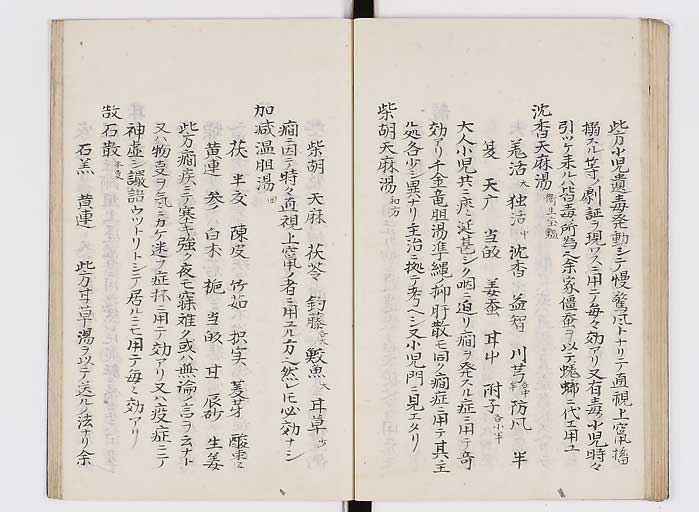 此方小児遺毒発動シテ慢驚風トナリテ直視上竄搐
搦スル等ノ劇証ヲ現ハスニ用テ毎々効アリ又有毒ノ小児時々
引ツケ来ル皆毒ノ所為ナ余家僵蚕ヲ以テ蜣蜋ニ代エ用ユ
沈香天麻湯 衛生宝鑑
羗活大 独活中 沈香 益智 川芎各中 防風 半
夏 天 广 当皈 姜蚕 耳屮 附子各小半
大人小児共ニ痰ニ延甚シク咽ニ迫リ癇ヲ発スル症ニ用テ奇
効アリ千金竜胆湯準縄ノ抑肝散モ同ク癇症ニ用テ其主
処各少シ異ナリ主治ニ拠テ考ヘシ又小児門ニ見エタリ
柴胡天麻湯 和方
柴胡 天麻 茯苓 釣藤各大 鮫魚大 耳草少
癇ニ因テ時々直視上竄ノ者ニ用ユル方ヘ然ヒトモ必効ナシ
加減温胆湯 回
茯 半夏 陳皮 竹茹 枳実 蔓荊 酸棗仁
黄連 参 白木 梔 当皈 甘 辰砂 生姜
此方癇疾ニテ塞キ強ク夜モ寐難ク或ハ無論ノ言ヲ云ナト
又ハ物憂ヲ気ニカケ迷フ症抔ニ用テ効アリ又ハ疫症ニテ
神虚シ譫語ウツトリトシテ居ルニモ用テ毎々効アリ
石羔 黄連 此方耳草湯ヲ以テ送ルノ法ナリ余